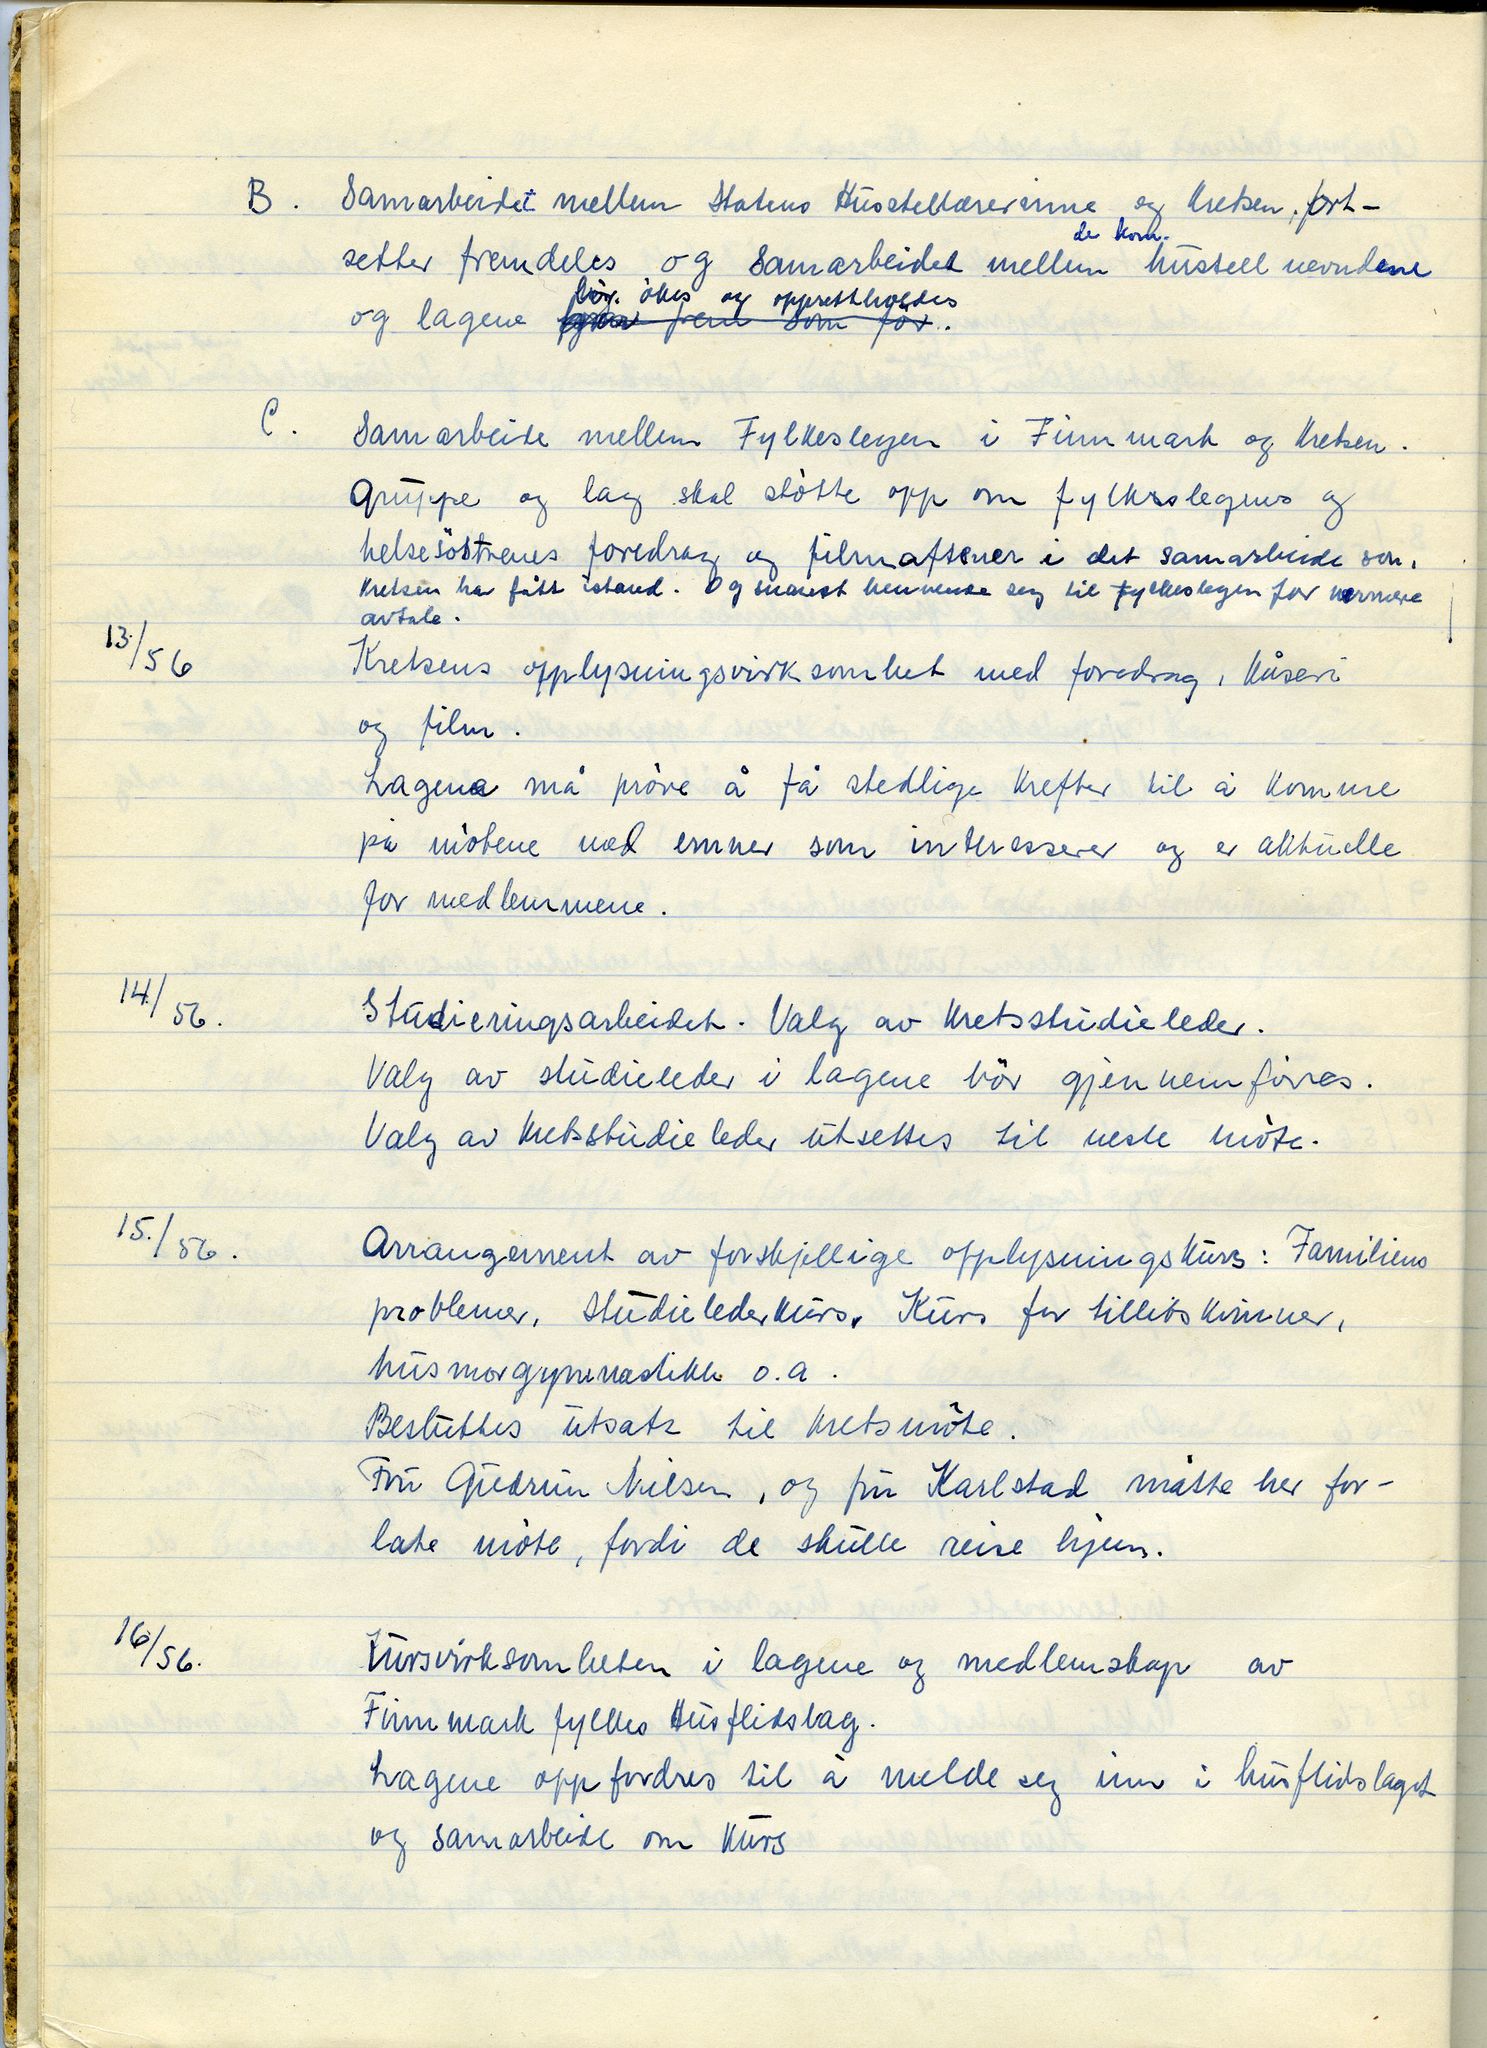 B. Samarbeidet mellem Statens Husstellærerinne og Kretsen, fort-
de kom.
setter fremdeles og Samarbeidet mellem hústell nevndene
bör. ökes og opprettholdes
og lagene som för.
C. Samarbeide mellem Fylkeslegen i Finnmark og Kretsen.
Grúppe og lag skal stötte opp om fylkeslegens og
helsesöstrenes foredrag og filmaftener i det samarbeide som
Kretsen har fått istand. Og snarest henvende seg til Fylkeslegen for nærmere
avtale.
13./56 Kretsens opplysningsvirksomhet med foredrag, kåseri
og film.
Lagene må pröve å få stedlige krefter til å komme
på mötene med emner som interesserer og er aktúelle
for medlemmene.
14./56. Stúdieringsarbeidet. Valg av Kretsstúdieleder.
Valg av stúdieleder i lagene bör gjennemföres.
Valg av Kretsstúdieleder útsettes til neste möte.
15./56. Arrangement av forskjellige opplysningskúrs: Familiens
problemer, stúdielederkúrs, Kúrs for tillitskvinner,
húsmorgymnastikk o.a.
Beslúttes útsatt til Kretsmöte.
Frú Gúdrún Nilsen, og frú Karlstad måtte her for-
late möte, fordi de skúlle reise hjem.
16/56. Kúrsvirksomheten i lagene og medlemskap av
Finnmark fylkes Húsflidslag.
Lagene oppfordres til å melde seg inn i húsflidslaget
og samarbeide om kúrs